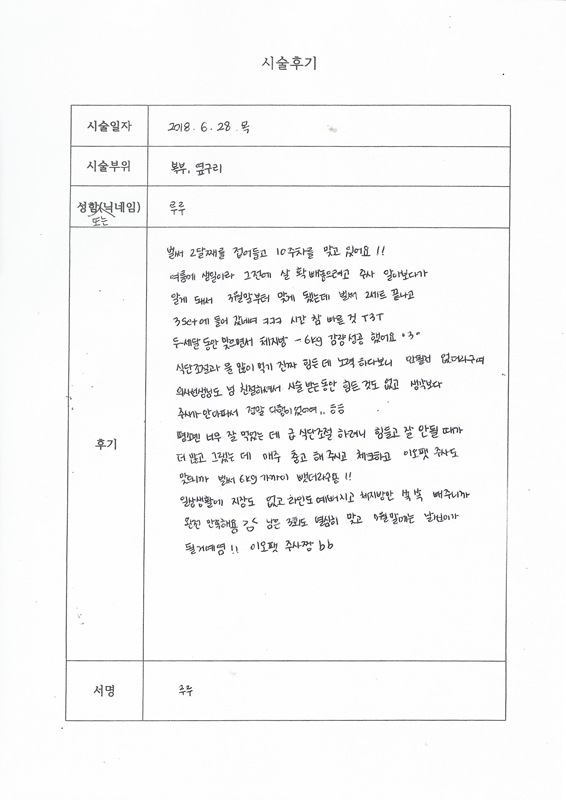 시술후기
시술일자 2018. 6. 28. 목
시술부위 복부, 옆구리
성함(닉네임) 루루
또는
후기
벌써 2달째를 접어들고 10주차를 맞고 있어요!!
여름에 생일이라 그전에 살 확 빼놓으려고 주사 알아보다가
알게 돼서 3월말부터 맞게 됐는데 벌써 2세트 끝나고
3set에 들어 갔네여 ㅋㅋㅋ 시간 참 빠른 것 T3T
두세달 동안 맞으면서 체지방 -6kg 감량성공 했어요 °3°
식단조절과 물 많이 먹기 진짜 힘든 데 노력 하다보니 안될건 없더라구여
의사선생님도 넘 친절하셔서 시술 받는동안 힘든 것도 없고 생각보다
주사가 안아파서 정말 다행이었어여,, ㅎㅎ
평소엔 너무 잘 먹었는 데 급 식단조절 하려니 힘들고 잘 안될 때가
더 많고 그랬는 데 매주 출고 해 주시고 체크하고 이오팻 주사도
맞으니까 벌써 6kg 가까이 뺐더라구용!!
일상생활에 지장도 없고 라인도 예뻐지고 체지방만 쏙쏙 빼주니까
완전 만족해용 남은 3회도 열심히 맞고 5월말에는 날씬이가
될거예영!! 이오팻 주사짱 bb
서명 루루